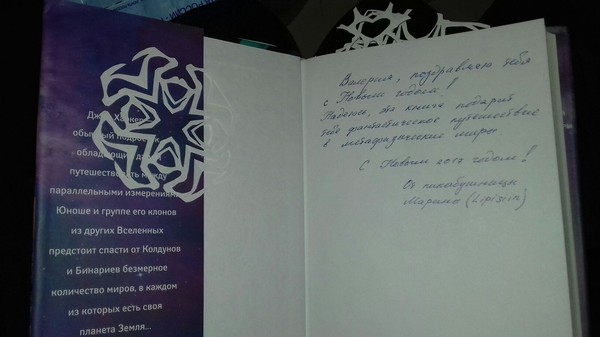 Джои Харкер
обычный подросток,
обладающий да
путешествовать между
параллельными измерениями
Юноше и группе его клонов
из других Вселенных
предстоит спасти от Колдунов
и Бинариев безмерное
количество миров, в каждом
из которых есть своя
планета Земля...
Валерия, поздравляю тебя
с Новым годом!
Надеюсь, эта книга подарит
тебе фантастическое путешествие
в метафизические миры.
С Новым 2017 годом!
От пикабушницы
Марины (Lipiziin)